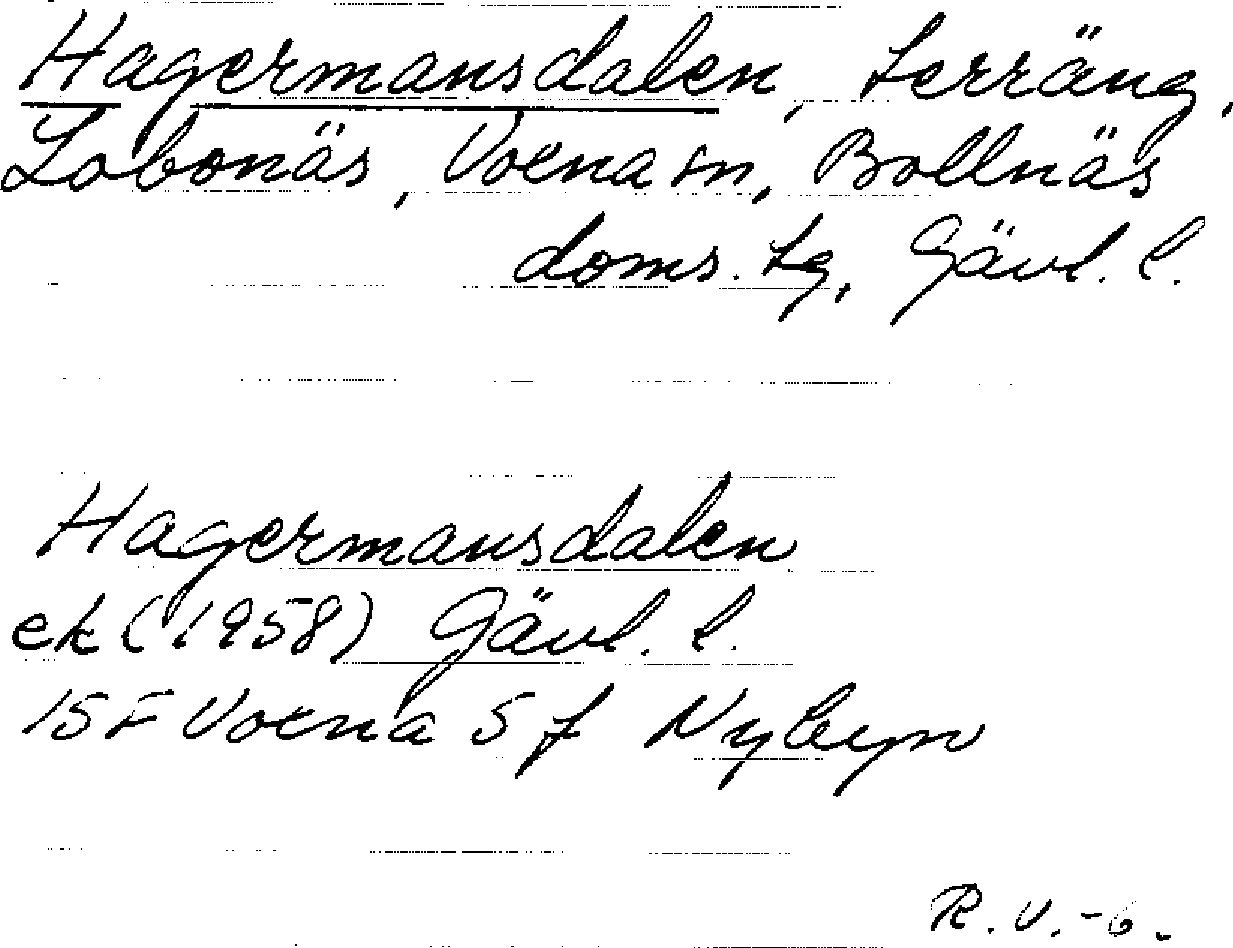 Hagermansdalen, terräng,
Lobonäs, Voxna sn, Bollnäs
doms. tg, Gävl. l.
Hagermansdalen
ek (1958) Gävl. l.
15F Voxna 5 f Nybyn
R. V. -6.